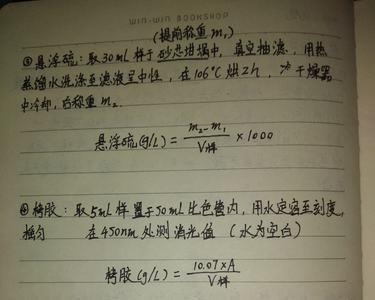 WIN-WIN BOOKSHOP
(提前称重 m₁)
③ 悬浮硫：取30mL样于砂芯坩埚中，真空抽滤，用热
蒸馏水洗涤至滤液呈中性，在106°C烘2h，于干燥器
中冷却，后称重 m₂.
悬浮硫(g/L) = \frac{m₂-m₁}{V样} × 1000
④ 栲胶：取5mL样置于50mL比色管内，用水定容至刻度，
摇匀 在450nm处测消光值（水为空白）
栲胶(g/L) = \frac{10.07×A}{V样}